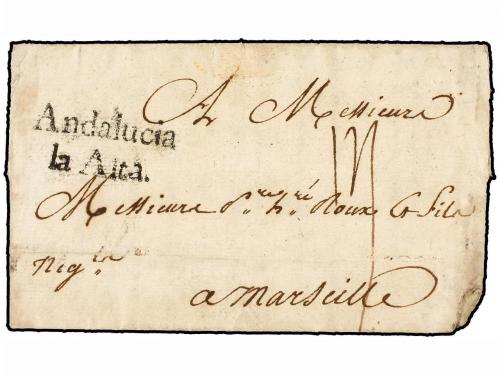 Andalucia
la Alta.
A Messieurs
Messieurs P.re h.ré Roux & fils
Neg.ts
a Marseille